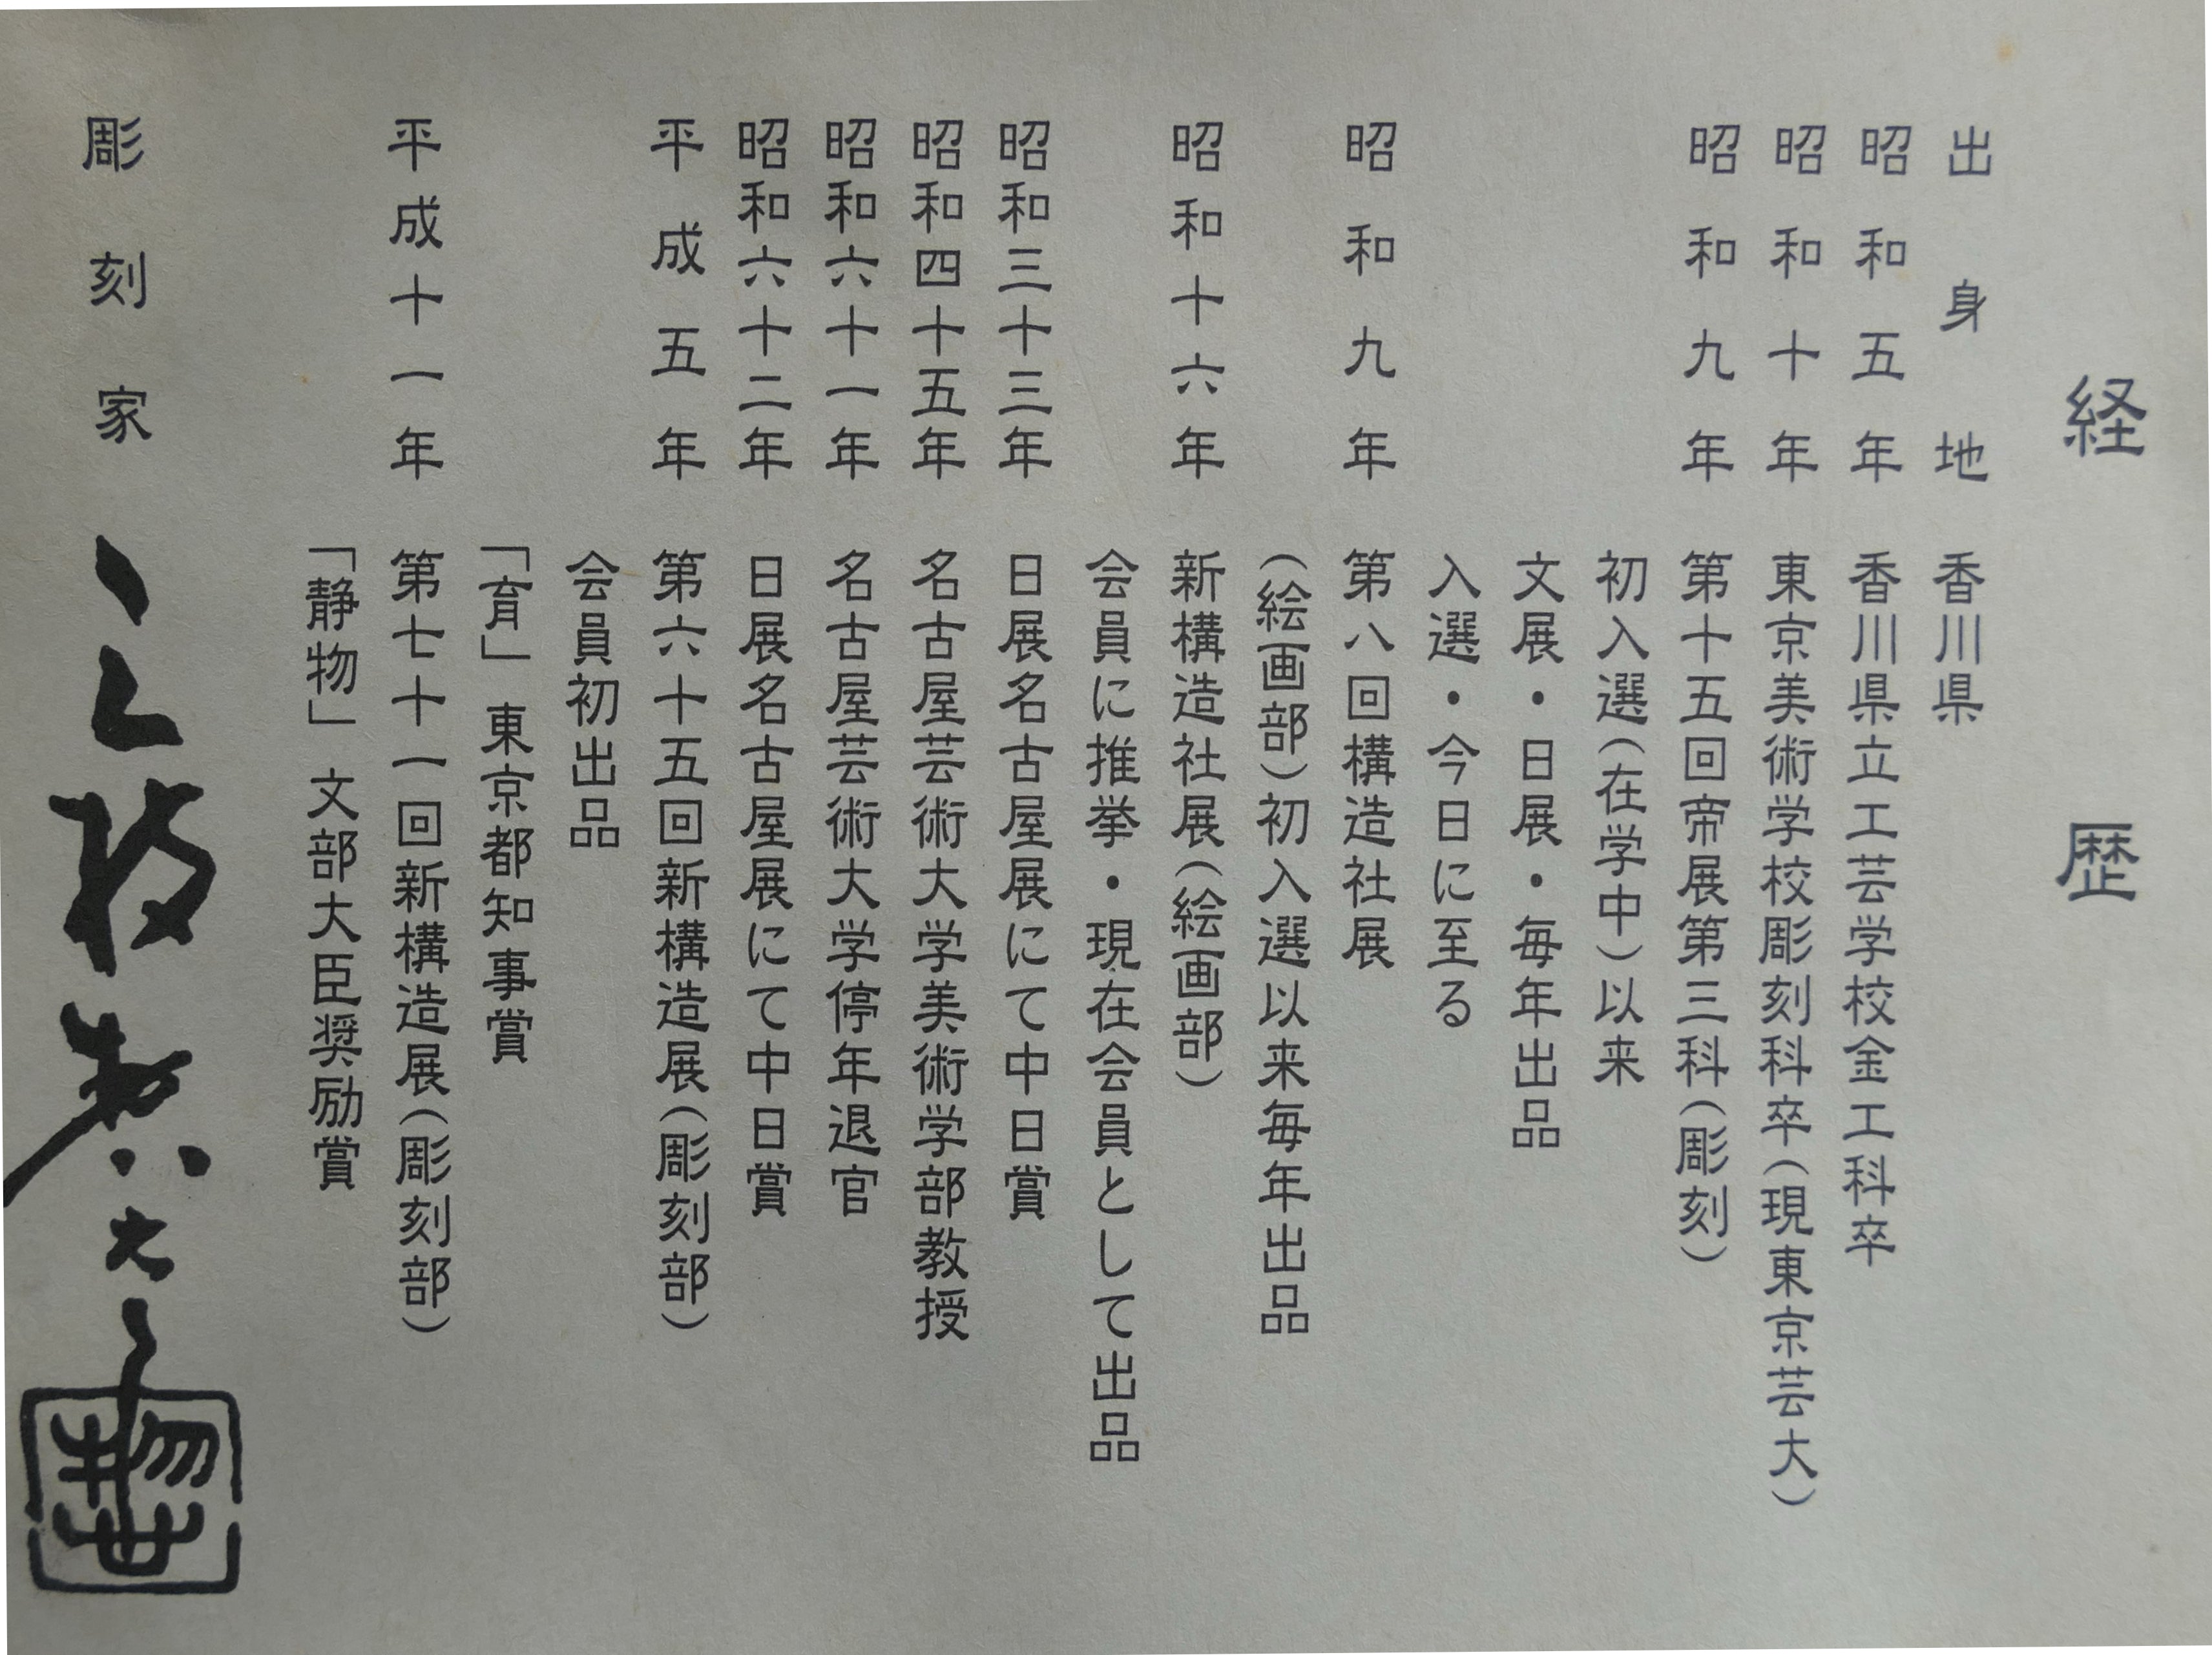 経歴
出身地 香川県
昭和五年 香川県立工芸学校金工科卒
昭和十年 東京美術学校彫刻科卒(現東京芸大)
昭和九年 第十五回帝展第三科(彫刻)
初入選(在学中)以来
文展・日展・毎年出品
入選・今日に至る
昭和九年 第八回構造社展
(絵画部)初入選以来毎年出品
昭和十六年 新構造社展(絵画部)
会員に推挙・現在会員として出品
昭和三十三年 日展名古屋展にて中日賞
昭和四十五年 名古屋芸術大学美術学部教授
昭和六十一年 名古屋芸術大学停年退官
昭和六十二年 日展名古屋展にて中日賞
平成五年 第六十五回新構造展(彫刻部)
会員初出品
「育」東京都知事賞
平成十一年 第七十一回新構造展(彫刻部)
「静物」文部大臣奨励賞
彫刻家